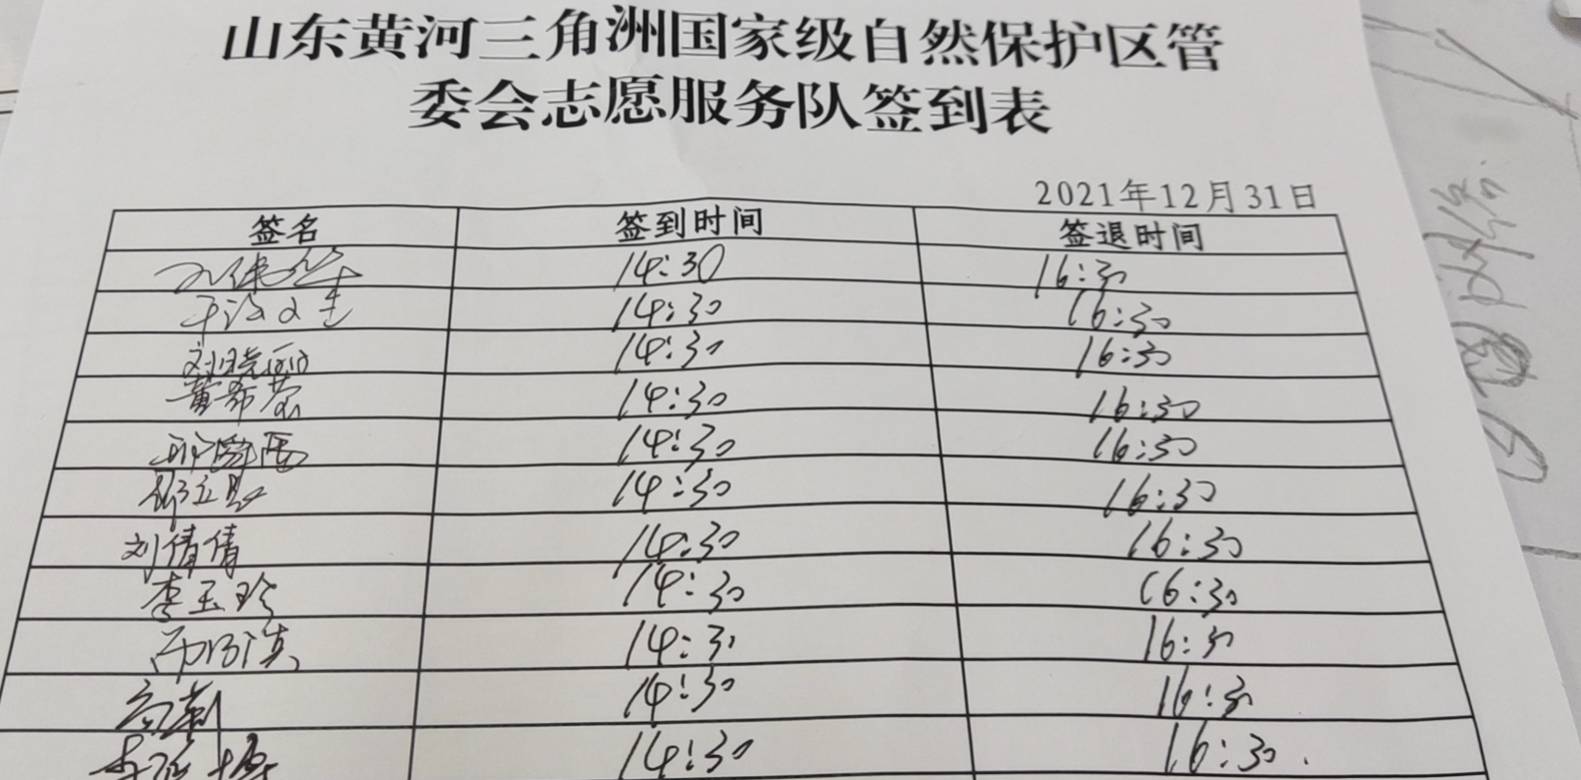 山东黄河三角洲国家级自然保护区管
委会志愿服务队签到表
2021年12月31日
签名 签到时间 签退时间
14:30 16:30
14:30 16:30
刘晓丽 14:30 16:30
黄希荣 14:30 16:30
14:30 16:30
14:30 16:30
刘倩倩 14:30 16:30
李玉珍 14:30 16:30
14:30 16:30
高莉 14:30 16:30
14:30 16:30